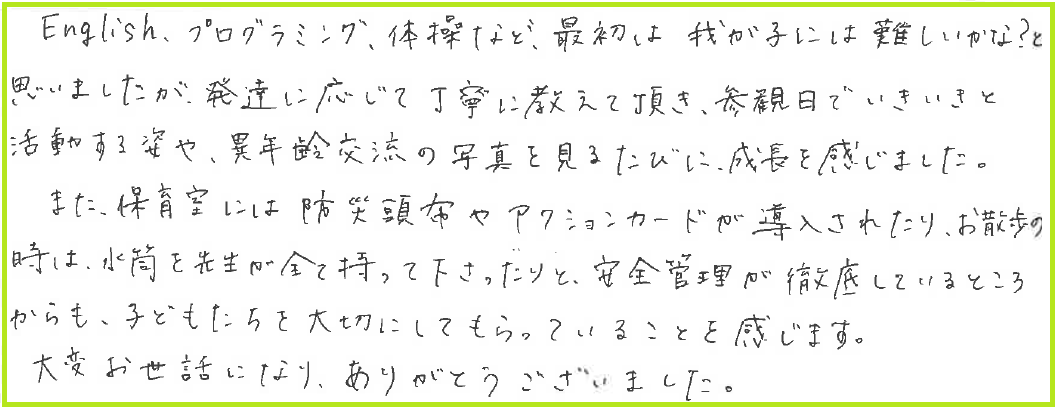 English、プログラミング、体操など、最初は 我が子には難しいかな?と
思いましたが、発達に応じて丁寧に教えて頂き、参観日でいきいきと
活動する姿や、異年齢交流の写真を見るたびに、成長を感じました。
また、保育室には防災頭布やアクションカードが導入されたり、お散歩の
時は、水筒を先生が全て持って下さったりと、安全管理が徹底しているところ
からも、子どもたちを大切にしてもらっていることを感じます。
大変お世話になり、ありがとうございました。